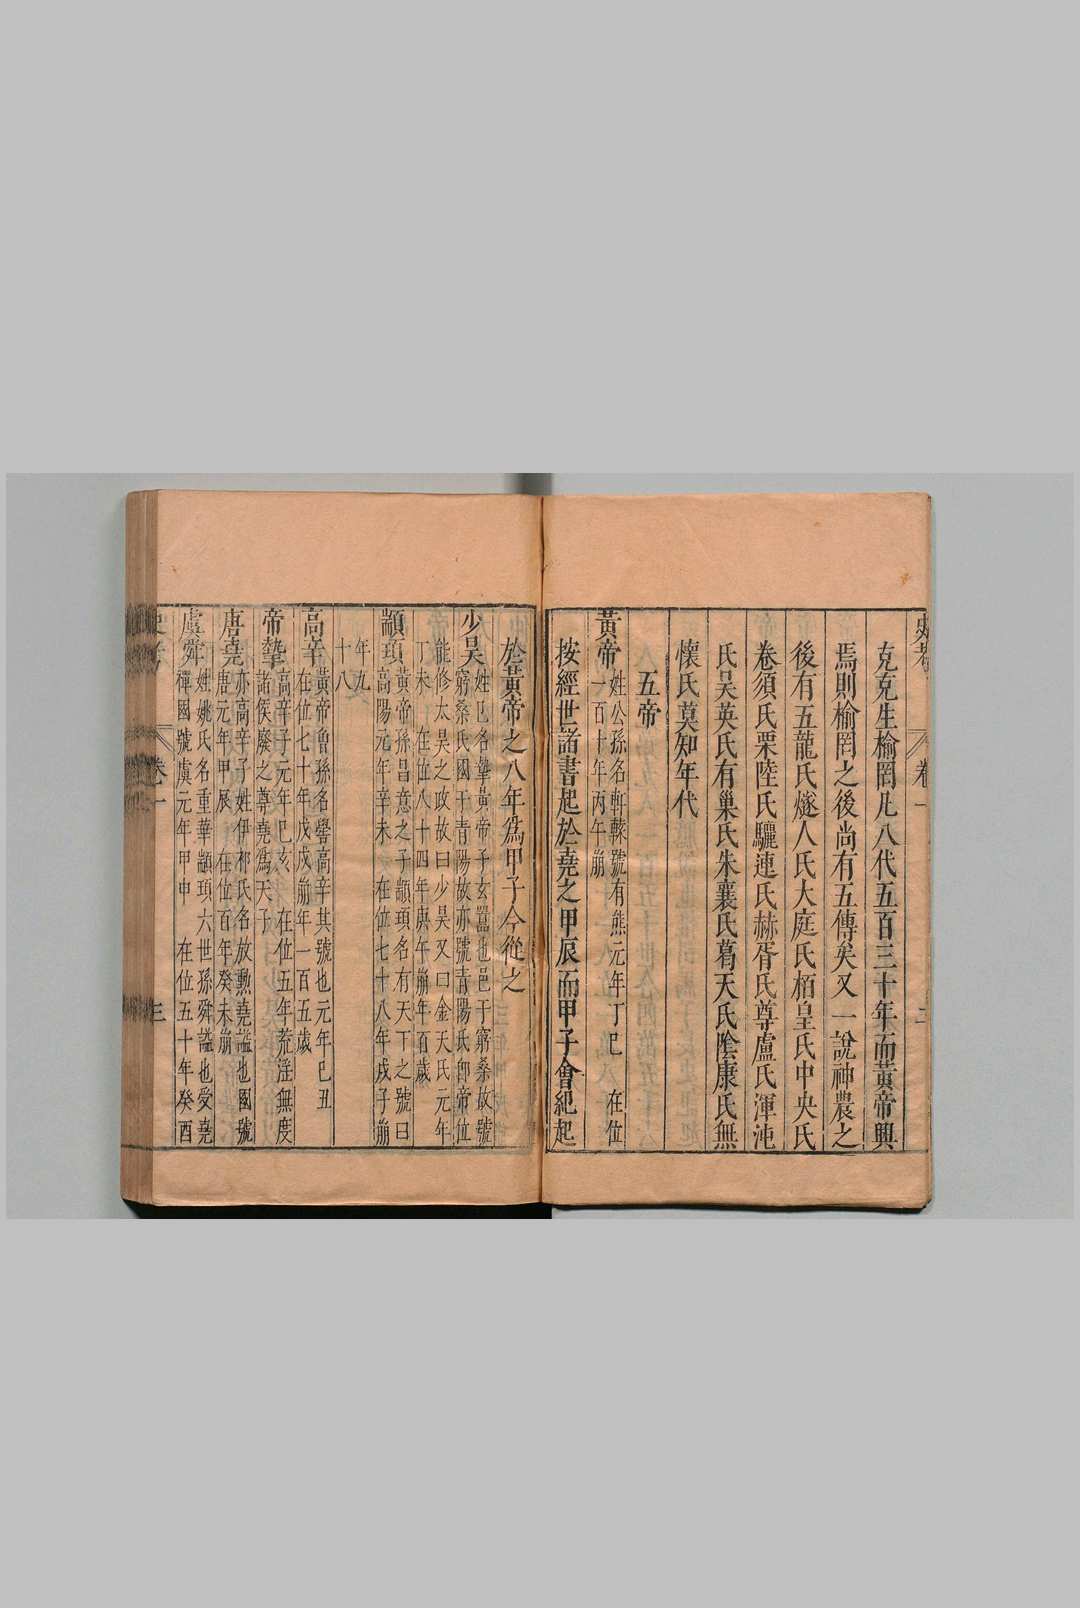 克克生榆罔凡八代五百三十年而黃帝興
焉則榆罔之後尚有五傳矣又一說神農之
後有五龍氏燧人氏大庭氏栢皇氏中央氏
卷須氏栗陸氏驪連氏赫胥氏尊盧氏渾沌
氏吴英氏有巢氏朱襄氏葛天氏陰康氏無
懷氏莫知年代
五帝
黃帝
姓公孫名軒轅號有熊元年丁巳 在位
一百十年丙午崩
按經世諸書起於堯之甲辰而甲子會紀起
於黃帝之八年為甲子今從之
少吴
姓巳名摯黃帝子玄囂也邑于窮桑故號
窮桑氏國于青陽故亦號青陽氏即帝位
能修太昊之政故曰少昊又曰金天氏元年
丁未 在位八十四年庚午崩年百歲
顓頊
黃帝孫昌意之子顓頊名有天下之號曰
高陽元年辛未 在位七十八年戊子崩
年九
十八
高辛
黃帝曾孫名嚳高辛其號也元年己丑
在位七十年戊戌崩年一百五歲
帝摯
高辛子元年巳亥 在位五年荒淫無度
諸侯廢之尊堯為天子
唐堯
亦高辛子姓伊祁氏名放勲堯謚也國號
唐元年甲辰 在位百年癸未崩
虞舜
姓姚氏名重華顓頊六世孫舜謚也受堯
禪國號虞元年甲申 在位五十年癸酉
卷一
三
卷一